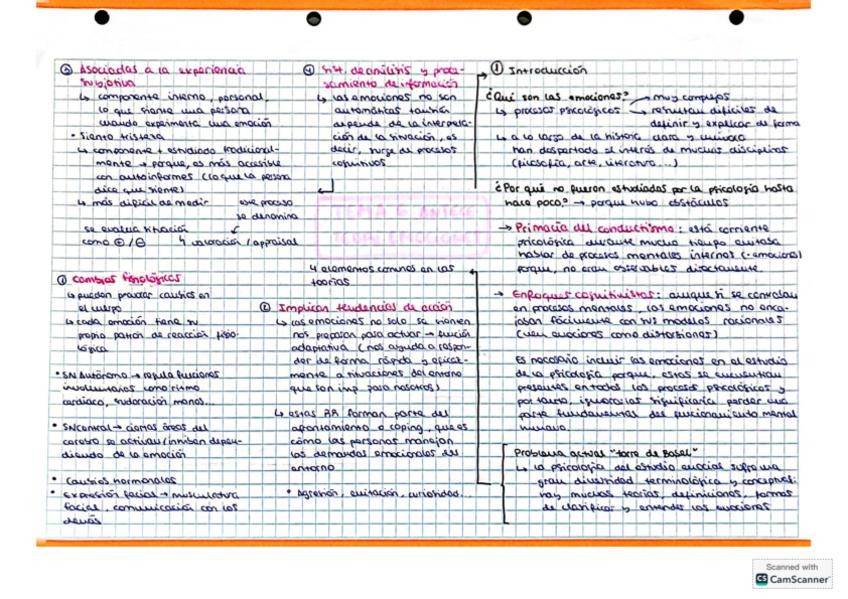 ① Introducción
¿Qué son las emociones?
muy complejos
↳ procesos psicológicos
resultan difíciles de
definir y explicar de forma
clara y unívoca
↳ a lo largo de la historia
han despertado el interés de muchas disciplinas
(filosofía, arte, literatura...)
¿Por qué no fueron estudiadas por la psicología hasta
hace poco? → porque hubo obstáculos
→ Primacía del conductismo: esta corriente
psicológica durante mucho tiempo evitaba
hablar de procesos mentales internos (-emociones)
porque, no eran observables directamente.
→ Enfoques cognitivistas: aunque sí se centraban
en procesos mentales, las emociones no enca-
jaban fácilmente con sus modelos racionales
(veían emociones como distorsiones)
Es necesario incluir las emociones en el estudio
de la psicología porque, estas se encuentran
presentes en todos los procesos psicológicos y
por tanto, ignorarlas significaría perder una
parte fundamental del funcionamiento mental
humano.
Problema actual "torre de Babel"
↳ la psicología del estudio emocial sufre una
gran diversidad terminológica y conceptual:
hay muchas teorías, definiciones, formas
de clasificar y entender las emociones
4 elementos comunes en las
teorías
① Cambios fisiológicos
↳ pueden provocar cambios en
el cuerpo
↳ cada emoción tiene su
propio patrón de reacción fisio-
lógica
• SN Autónomo → regula funciones
involuntarias como ritmo
cardiaco, sudoración manos...
• SNCentral → ciertas áreas del
cerebro se activan/inhiben depen-
diendo de la emoción
• Cambios hormonales
• Expresión facial → musculatura
facial, comunicación con los
demás
② Implican tendencias de acción
↳ las emociones no solo se sienten
nos preparan para actuar → función
adaptativa (nos ayuda a respon-
der de forma rápida y eficaz-
mente a situaciones del entorno
que son imp para nosotros)
↳ estas RR forman parte del
afrontamiento o coping, que es
cómo las personas manejan
las demandas emocionales del
entorno
• Agresión, evitación, curiosidad...
③ Asociadas a la experiencia
subjetiva
↳ componente interno, personal,
lo que siente una persona
cuando experimenta una emoción
• Siento tristeza
↳ componente + estudiado tradicional-
mente → porque, es más accesible
con autoinformes (lo que la persona
dice que siente)
↳ más difícil de medir
④ Sist. de análisis y proce-
samiento de información
↳ las emociones no son
automáticas también
depende de la interpreta-
ción de la situación, es
decir, surge de procesos
cognitivos
este proceso
se denomina
↳ valoración / appraisal
se evalúa situación
como ⊕/⊖
TEMA 6
Scanned with
CS CamScanner